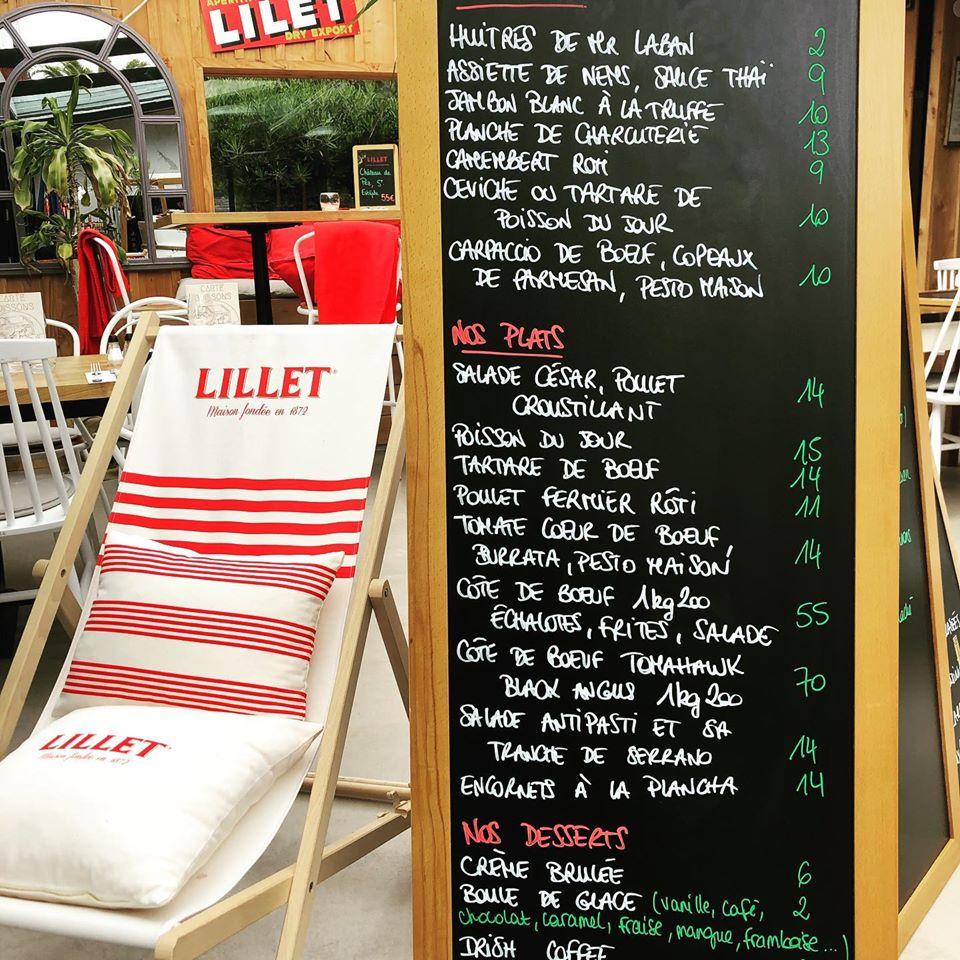 APERITIF
LILLET
DRY EXPORT
LILLET
Château de
55€
LILLET
Maison fondée en 1872
LILLET
Maison fondée en 1872
HUITRES DE MR LABAN 2
ASSIETTE DE NEMS, SAUCE THAÏ 9
JAMBON BLANC À LA TRUFFE 10
PLANCHE DE CHARCUTERIE 13
CAMEMBERT ROTI 9
CEVICHE OU TARTARE DE
POISSON DU JOUR 10
CARPACCIO DE BOEUF, COPEAUX
DE PARMESAN, PESTO MAISON 10
NOS PLATS
SALADE CÉSAR, POULET
CROUSTILLANT 14
POISSON DU JOUR 15
TARTARE DE BOEUF 14
POULET FERMIER RÔTI 11
TOMATE COEUR DE BOEUF,
BURRATA, PESTO MAISON 14
CÔTE DE BOEUF 1kg200
ÉCHALOTES, FRITES, SALADE 55
CÔTE DE BOEUF TOMAHAWK
BLACK ANGUS 1kg200 70
SALADE ANTIPASTI ET SA
TRANCHE DE SERRANO 14
ENCORNETS À LA PLANCHA 14
NOS DESSERTS
CRÈME BRULÉE 6
BOULE DE GLACE (vanille, café, 2
chocolat, caramel, fraise, mangue, framboise...)
IRISH COFFEE